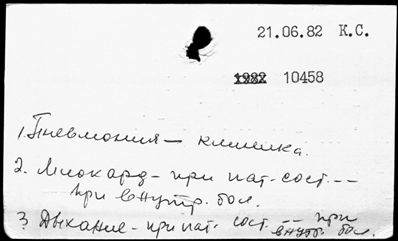 21.06.82 К.С.
1982 10458
1. Пневмония — клиника.
2. Миокард - при пат. сост. --
при внутр. бол.
3. Дыхание - при пат. сост. -- при
внутр. бол.